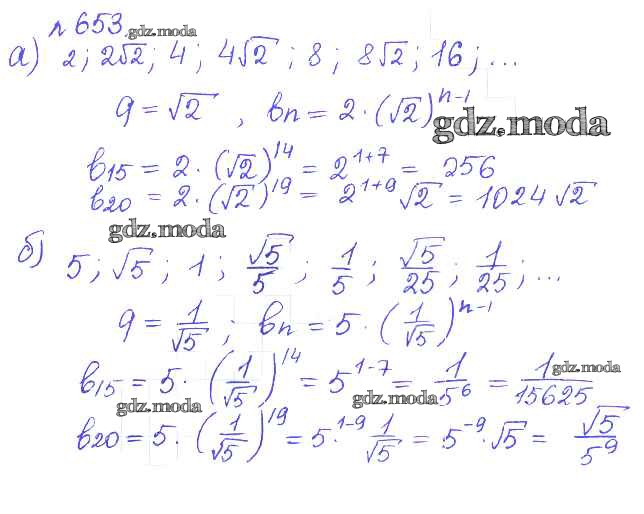 № 653 gdz.moda
а) 2; 2√2; 4; 4√2; 8; 8√2; 16; ...
q = √2, bn = 2·(√2)^(n-1)
gdz.moda
b15 = 2·(√2)^14 = 2^(1+7) = 256
b20 = 2·(√2)^19 = 2^(1+9)√2 = 1024√2
gdz.moda
б) 5; √5; 1; √5/5; 1/5; √5/25; 1/25; ...
q = 1/√5; bn = 5·(1/√5)^(n-1)
b15 = 5·(1/√5)^14 = 5^(1-7) = 1/5^6 = 1/15625
gdz.moda
gdz.moda gdz.moda
b20 = 5·(1/√5)^19 = 5^(1-9)·1/√5 = 5^(-9)·√5 = √5/5^9